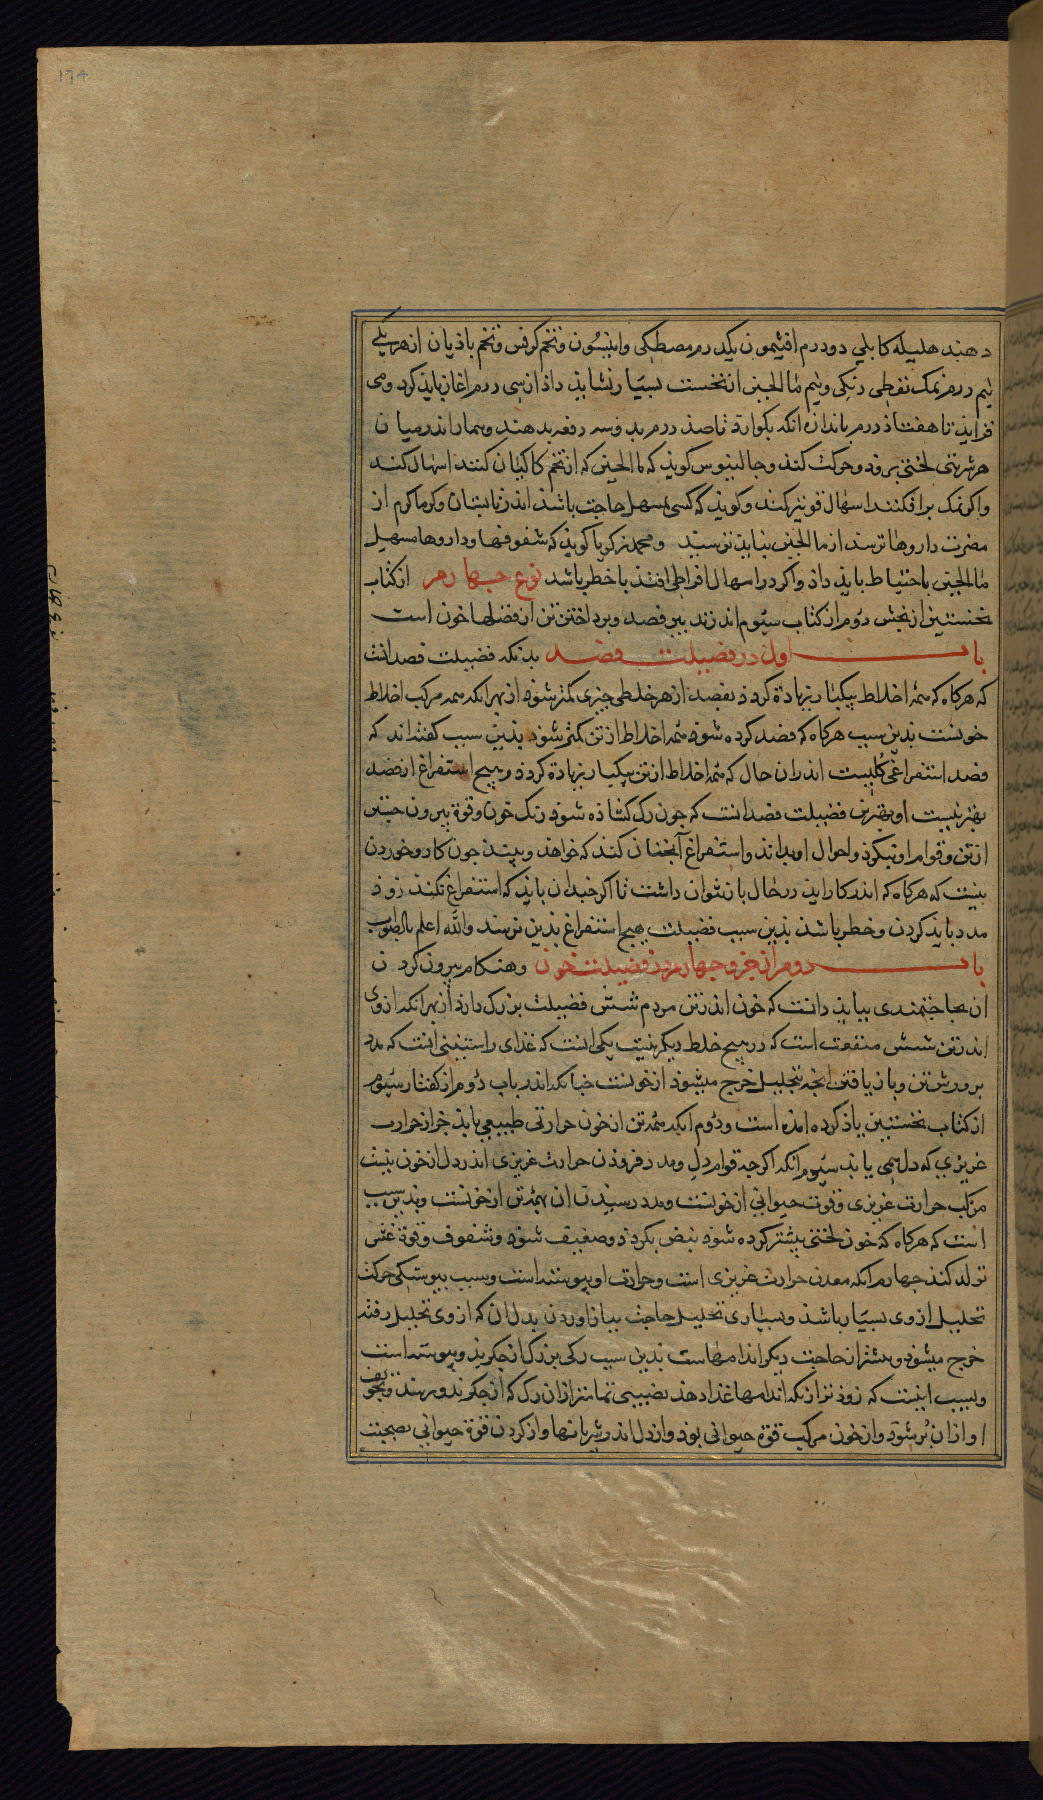 ۱۷۴
دهند هلیله کابلی دو درم افتیمون یکدرم مصطکی و انیسون و تخم کرفس و تخم باذیان از هر یکی
نیم درم نمک نفطی دنکی و نیم ما الجبن از نخست بسیار نشاید داذ از سی درم اغاز باید کرد و می
فزاید تا هفتاذ درم باندازه انکه بکوارد تا صد درم بدو سه دفعه بدهند و بیمار اندر میان
هر شربتی لختی برود و حرکت کند و جالینوس کوید که ما الجبن که از تخم کاکیان کنند اسهال کند
و اکر نمک برافکنند اسهال قویتر کند و کوید که کسی بمسهل حاجت باشد اندر تابستان و کرما کرم از
مضرت داروها ترسد از ما الجبن نباید ترسید و محمد زکریا کوید که سفوفها و داروها مسهل
ما الجبن باحتیاط باید داذ و اکر در اسهال افراطی افتد با خطر باشد نوع چهارم از کتاب
نخستین از بخش دوم از کتاب سیوم اندر تدبیر فصد و پرداختن تن از فضلها خون است
باب اول در فضیلت فصد بدنکه فضیلت فصد انست
که هرکاه که همه اخلاط بیکبار زیادة کردد بفصد از هر خلطی چیزی کمتر شود از بهر انکه همه مرکب اخلاط
خونست بدین سبب هرکاه که فصد کرده شود همه اخلاط از تن کمتر شود بدین سبب کفته‌اند که
فصد استفراغی کلیست اندران حال که همه اخلاط از تن بیکبار زیادة کردد و هیچ استفراغ از فصد
بهتر نیست او بهترین فضیلت فصد انست که چون رک کشاده شود رنک خون و قوة بیرون جستن
از تن و قوام او بنکرد و احوال او بداند و استفراغ آنچنان کند که خواهد و بیند چون کار و خوردن
نیست که هرکاه که اندر کار اید در حال باز نتوان داشت تا اکر چندان باید که استفراغ نکند زوذ
مدد باید کردن و خطر باشد بدین سبب فضیلت هیچ استفراغ بدین نرسد والله اعلم بالصواب
باب دوم از جزو چهارم در فضیلت خون و هنکام بیرون کردن
ان بحاجتمندی بباید دانست که خون اندر تن مردم شش فضیلت بزرک دارد از بهر انکه از وی
اندر تن شش منفعت است که در هیچ خلط دیکر نیست یکی انست که غذای راستینی انست که مدد
پرورش تن و باز یافتن انچه بتحلیل خرج میشود از خونست چنانکه اندر باب دوم از کفتار سیوم
از کتاب نخستین یاذ کرده امده است و دوم انکه همه تن از خون حرارتی طبیعی یابد جز از حرارت
غریزی که دل همی یابد سیوم انکه اکرچه قوام دل و مدد فزودن حرارت غریزی اندر دل از خون نیست
مرکب حرارت غریزی و قوت حیوانی از خونست و مدد رسیدن ان بهمه تن از خونست و بدین سبب
است که هرکاه که خون لختی بیشتر کرده شود نبض بکردد و ضعیف شود و شفوف و قوة غشی
تولد کند چهارم انکه معدن حرارت غریزی است و حرارت او پیوسته است و سبب پیوستکی حرکت
تحلیل از وی بسیار باشد و بسیاری تحلیل حاجت بباز اوردن بدل ان که از وی تحلیل رفته
خرج میشود و بیشتر از حاجت دیکر اندامهاست بدین سبب رکی بزرک از جکر بدو پیوسته است
و سبب اینست که زوذتر از انکه اندامها غذا دهد نصیبی تمامتر از ان رک که از جکر بدو رسد و تجویف
او از ان پر شود و از خون مرکب قوة حیوانی بود و از دل اندر شریانها و از کردن قوة حیوانی بصحبت